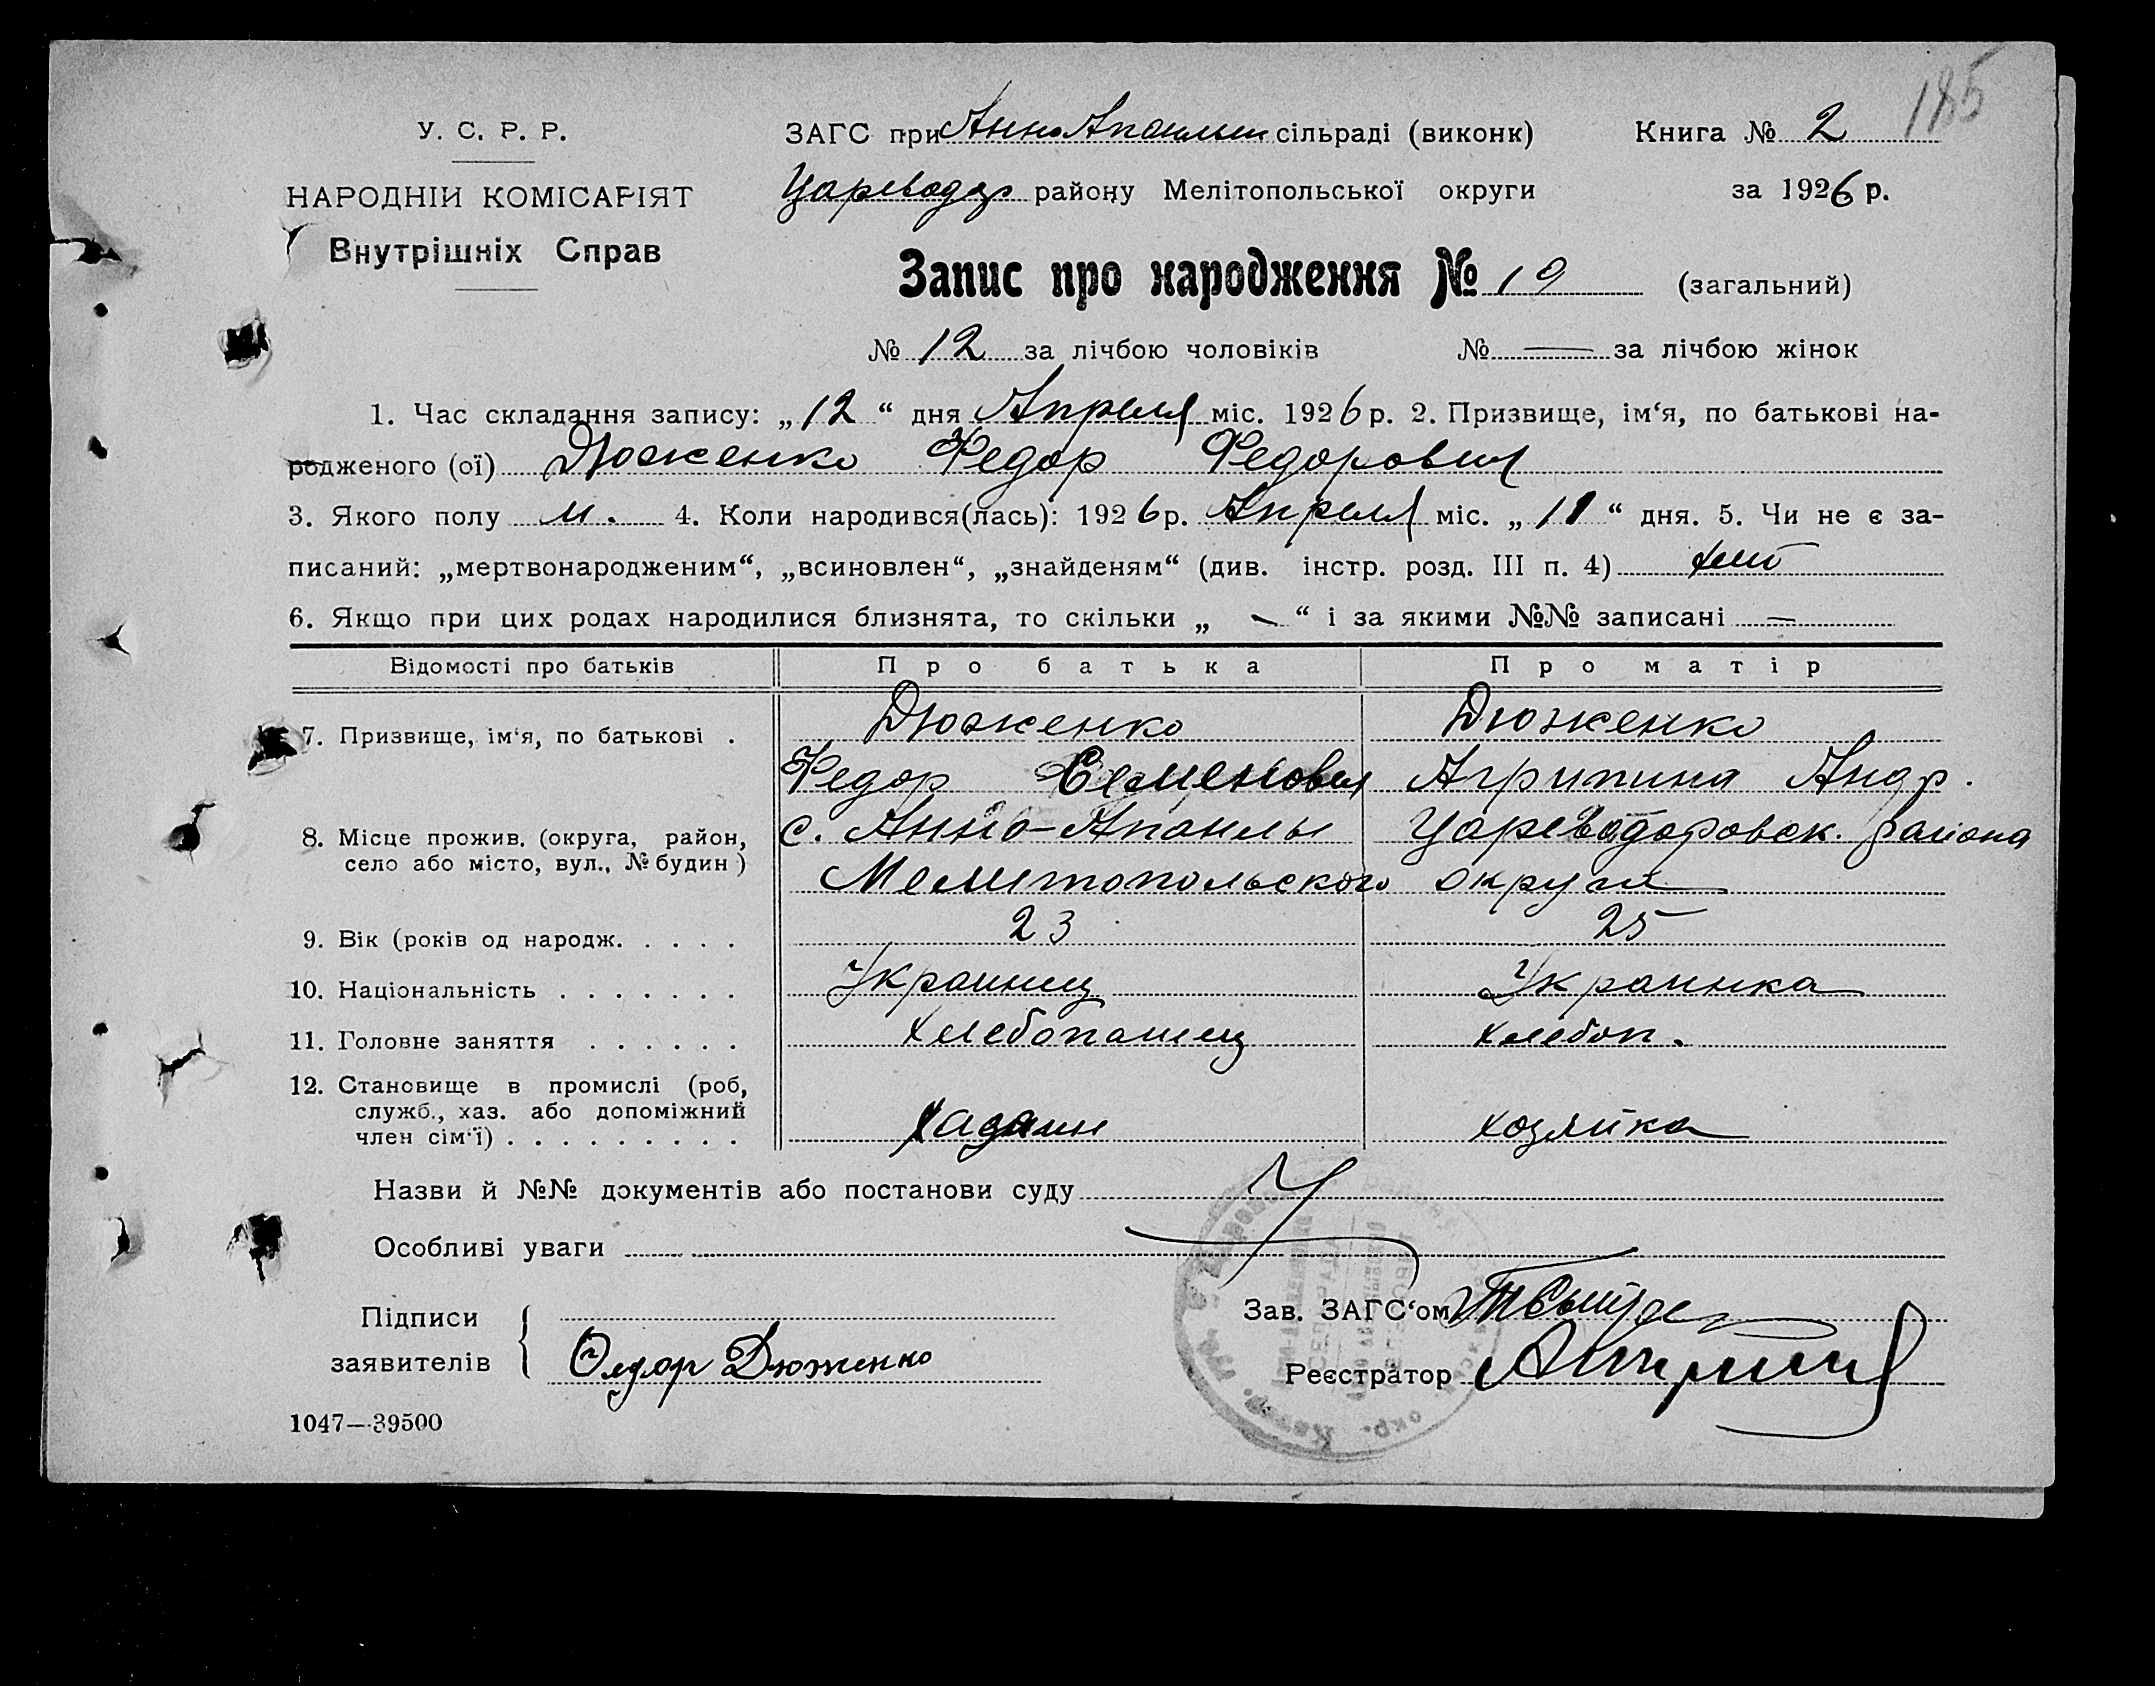 185
У. С. Р. Р.
НАРОДНІЙ КОМІСАРІЯТ
Внутрішніх Справ
ЗАГС при Анно Апанлын сільраді (виконк)
Книга № 2
Цареводар району Мелітопольської округи
за 1926 р.
Запис про народження № 19 (загальний)
№ 12 за лічбою чоловіків № — за лічбою жінок
1. Час складання запису: „12“ дня Апреля міс. 1926 р. 2. Призвище, ім‘я, по батькові на-
родженого (ої) Дюженко Федор Федорович
3. Якого полу м. 4. Коли народився(лась): 1926 р. Апреля міс. „11“ дня. 5. Чи не є за-
писаний: „мертвонародженим“, „всиновлен“, „знайденям“ (див. інстр. розд. III п. 4)
6. Якщо при цих родах народилися близнята, то скільки „ — “ і за якими №№ записані —
Відомості про батьків Про батька Про матір
7. Призвище, ім‘я, по батькові . Дюженко Дюженко
Федор Семенович Агрипина Андр.
8. Місце прожив. (округа, район, с. Анно-Апанлы Цареводаровск. района
село або місто, вул., № будин ) Мелитопольского округа
9. Вік (років од народж. . . . . 23 25
10. Національність . . . . . . . Украинец Украинка
11. Головне заняття . . . . . . Хлебопашец хлебоп.
12. Становище в промислі (роб,
служб., хаз. або допоміжний
член сім‘ї) . . . . . . . . . хазяин хозяйка
Назви й №№ документів або постанови суду
Особливі уваги
Підписи
заявителів
Федор Дюженко
Зав. ЗАГС‘ом
Реєстратор
1047—39500